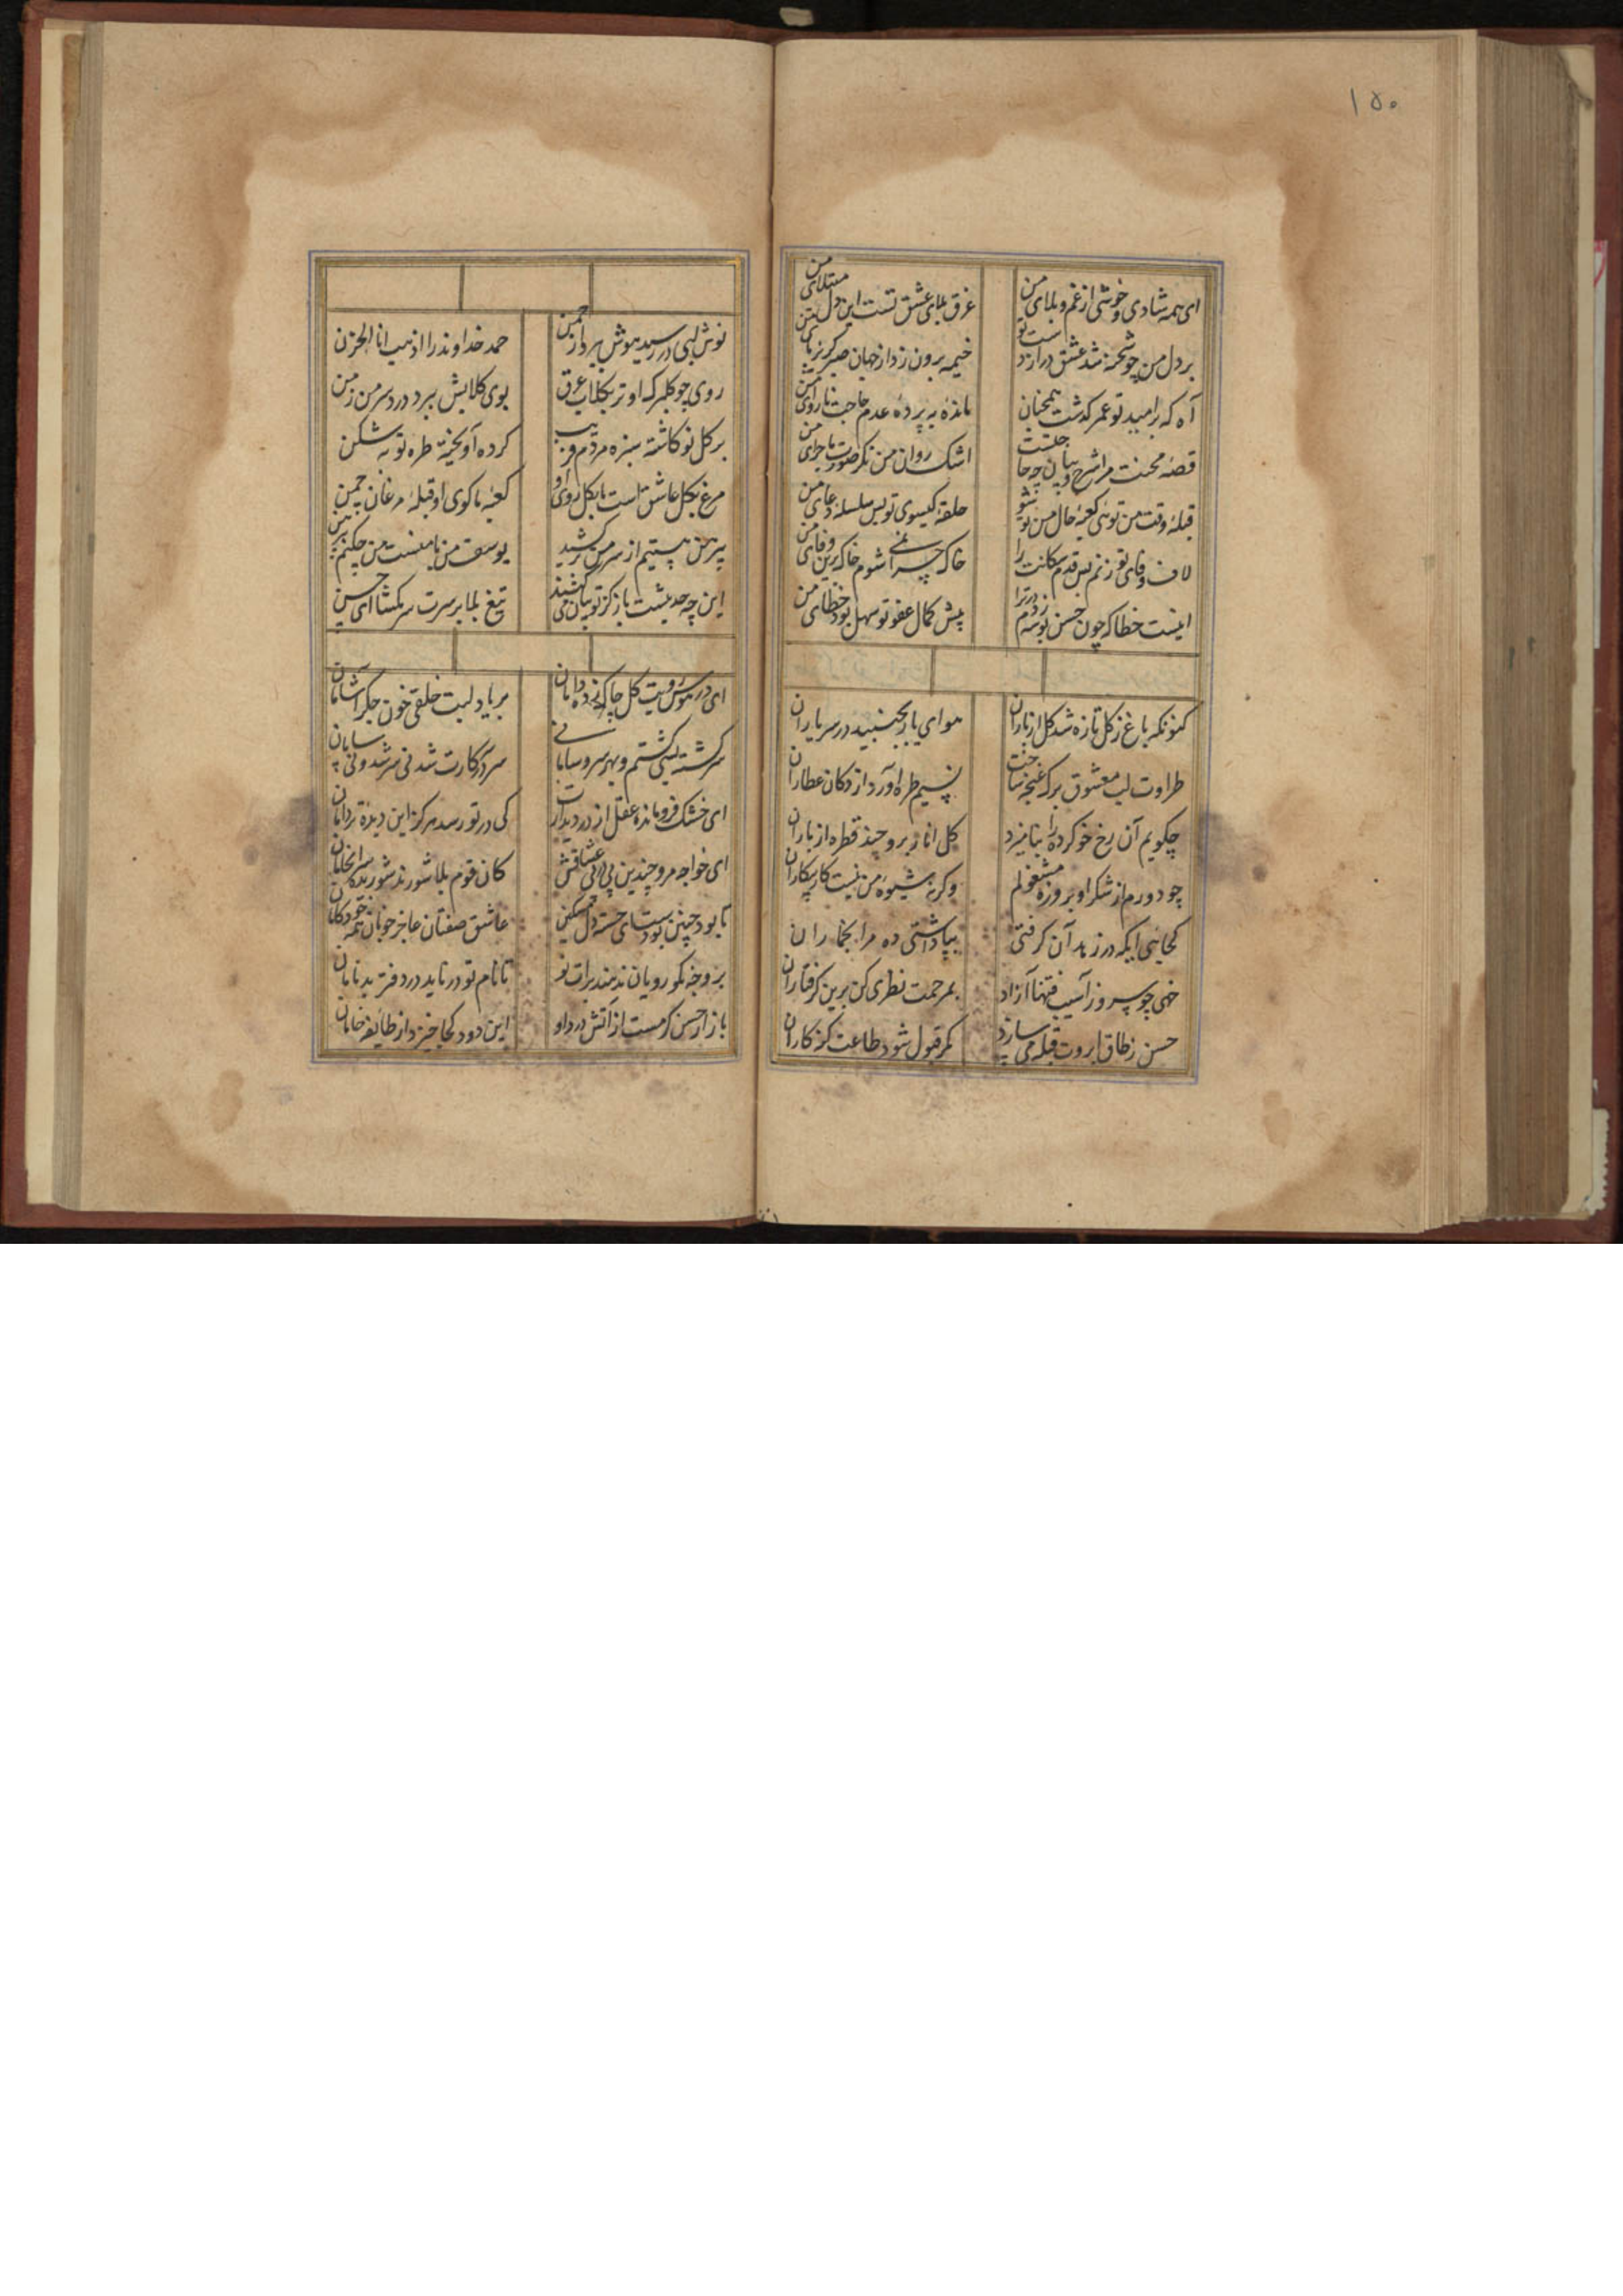 ۱۵۰
ای همه شادی و خوشی از غم و بلای من
غرق بلای عشق تست این دل مبتلای من
بر دل من چو شحنه شد عشق دراز دست تو
خیمه برون زد از جهان صبر گریزپای من
آه که بر امید تو عمر گذشت همچنان
مانده به پرده عدم حاجت ناروای من
قصه محنت مرا شرح و بیان چه حاجتست
اشک روان من نگر صورت ماجرای من
قبله وقت من توئی کعبه حال من تو شو
حلقه گیسوی تو بس سلسله دعای من
لاف وفای تو زنم پس قدم سکانت را
خاک چرا نمی شوم خاک برین وفای من
اینست خطا که چون حسن بوسه زدم در ترا
پیش کمال عفو تو سهل بود خطای من
کنونکه باغ ز گل تازه شد گل از باران
هوای یار بجنبید در سر یاران
طراوت لب معشوق برگ غنچه شناخت
نسیم طره او آرد از دکان عطاران
چگویم آن رخ خوی کرده را بنامیزد
گل انار برو چند قطره از باران
چو دورم از شکر او بروزه مشغولم
وگرنه شیوه من نیست کار بیکاران
کجائی ایکه در زهد آن گرفتی
بیا و آشتی ده مرا بخماران
خهی چو سرو ز آسیب فتنها آزاد
بمرحمت نظری کن برین گرفتاران
حسن ز طاق ابروت قبله می سازد
مگر قبول شود طاعت گنه کاران
نوش لبی در رسید هوش ببرد از من
حمد خداوند را اذهب انا الحزن
روی چو گلبرگ او تر بگلاب عرق
بوی گلابش ببرد درد سر من ز من
بر گل نو کاشته سبزه مردم فریب
کرده آویخته طره تو به شکن
مرغ بگل عاشق است ما بگل روی او
کعبه ما کوی او قبله مرغان چمن
پیرهن هستیم از سر من بر کشید
یوسف من با منست من چکنم پیرهن
این چه حدیثست باز کز تو بیان می کنند
تیغ بلا بر سرت سر مکش ای حسن
ای در هوس رویت گل چاک زده دامان
بر یاد لبت خلقی خون جگر آشامان
سرگشته بسی گشتم وبهر سر و سامانی
سر در سر کارت شد نی سر شد و نی سامان
ای خشک فرو مانده عقل از در دیدارت
کی در تو رسد هرگز این دیده تر دامان
ای خواجه مرو چندین پی بر پی عشاقش
کان قوم بلا شورند شوریده سرانجامان
تا بود چنین بودست ای خسته دل مسکین
عاشق صفتان عاجز خوبان همه خودکامان
بر وجه نکو رویان ندهند برات تو
تا نام تو در ناید در دفتر بدنامان
بازار حسن گرمست از آتش درد او
این دود کجا خیزد از طایفه خامان